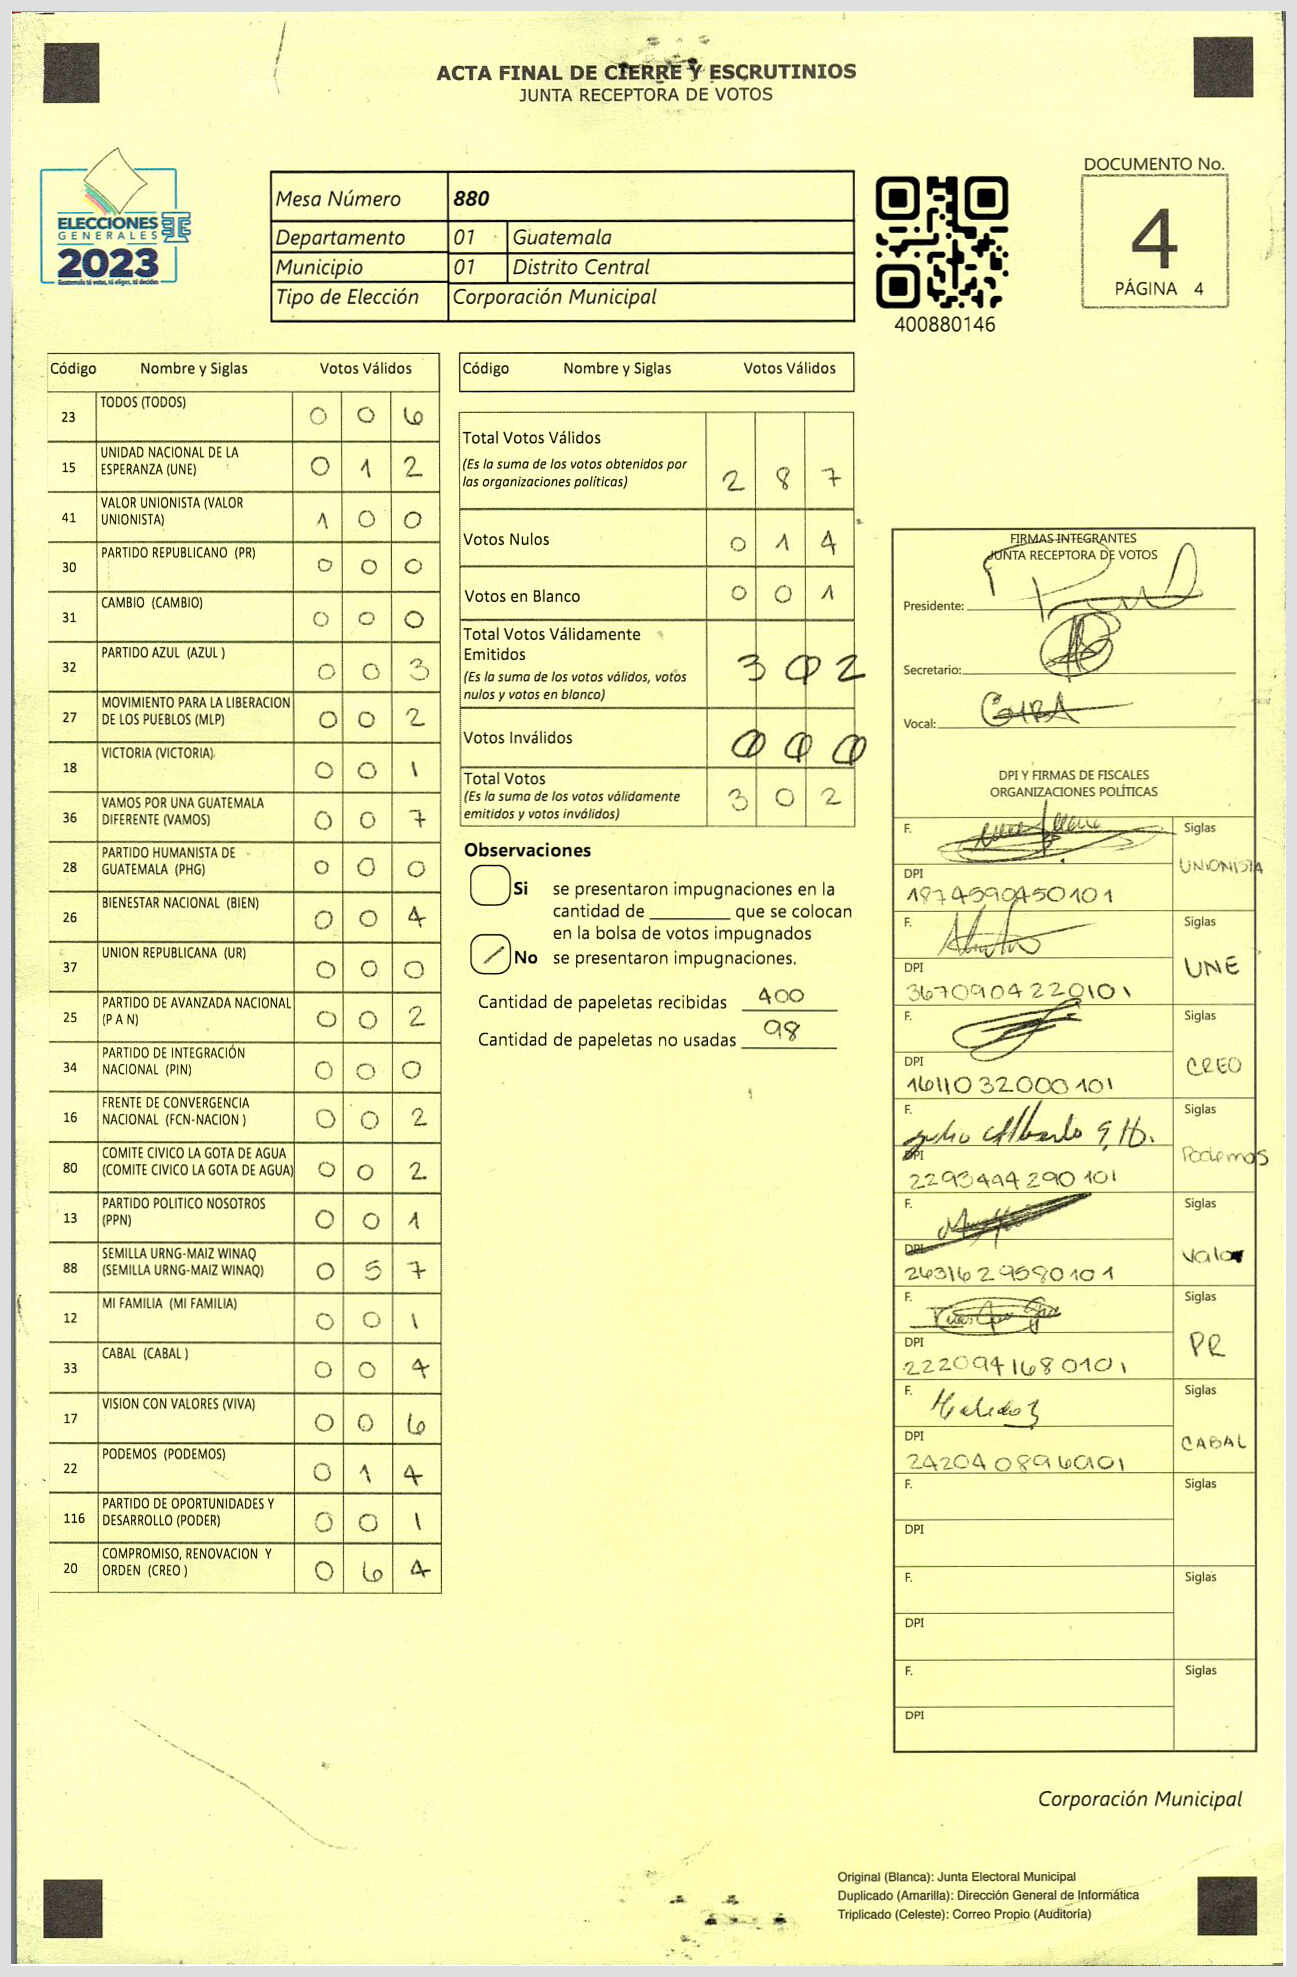 ACTA FINAL DE CIERRE Y ESCRUTINIOS
JUNTA RECEPTORA DE VOTOS
ELECCIONES
GENERALES
2023
Guatemala tú votas, tú eliges, tú decides
Mesa Número 880
Departamento 01 Guatemala
Municipio 01 Distrito Central
Tipo de Elección Corporación Municipal
400880146
DOCUMENTO No.
4
PÁGINA 4
Código Nombre y Siglas Votos Válidos
23 TODOS (TODOS) 0 0 6
15 UNIDAD NACIONAL DE LA ESPERANZA (UNE) 0 1 2
41 VALOR UNIONISTA (VALOR UNIONISTA) 1 0 0
30 PARTIDO REPUBLICANO (PR) 0 0 0
31 CAMBIO (CAMBIO) 0 0 0
32 PARTIDO AZUL (AZUL ) 0 0 3
27 MOVIMIENTO PARA LA LIBERACION DE LOS PUEBLOS (MLP) 0 0 2
18 VICTORIA (VICTORIA) 0 0 1
36 VAMOS POR UNA GUATEMALA DIFERENTE (VAMOS) 0 0 7
28 PARTIDO HUMANISTA DE GUATEMALA (PHG) 0 0 0
26 BIENESTAR NACIONAL (BIEN) 0 0 4
37 UNION REPUBLICANA (UR) 0 0 0
25 PARTIDO DE AVANZADA NACIONAL (P A N) 0 0 2
34 PARTIDO DE INTEGRACIÓN NACIONAL (PIN) 0 0 0
16 FRENTE DE CONVERGENCIA NACIONAL (FCN-NACION ) 0 0 2
80 COMITE CIVICO LA GOTA DE AGUA (COMITE CIVICO LA GOTA DE AGUA) 0 0 2
13 PARTIDO POLITICO NOSOTROS (PPN) 0 0 1
88 SEMILLA URNG-MAIZ WINAQ (SEMILLA URNG-MAIZ WINAQ) 0 5 7
12 MI FAMILIA (MI FAMILIA) 0 0 1
33 CABAL (CABAL ) 0 0 4
17 VISION CON VALORES (VIVA) 0 0 6
22 PODEMOS (PODEMOS) 0 1 4
116 PARTIDO DE OPORTUNIDADES Y DESARROLLO (PODER) 0 0 1
20 COMPROMISO, RENOVACION Y ORDEN (CREO ) 0 6 4
Código Nombre y Siglas Votos Válidos
Total Votos Válidos
(Es la suma de los votos obtenidos por
las organizaciones políticas) 2 8 7
Votos Nulos 0 1 4
Votos en Blanco 0 0 1
Total Votos Válidamente
Emitidos
(Es la suma de los votos válidos, votos
nulos y votos en blanco) 3 0 2
Votos Inválidos 0 0 0
Total Votos
(Es la suma de los votos válidamente
emitidos y votos inválidos) 3 0 2
Observaciones
Si se presentaron impugnaciones en la
cantidad de ________ que se colocan
en la bolsa de votos impugnados
No se presentaron impugnaciones.
Cantidad de papeletas recibidas 400
Cantidad de papeletas no usadas 98
FIRMAS INTEGRANTES
JUNTA RECEPTORA DE VOTOS
Presidente:
Secretario:
Vocal:
DPI Y FIRMAS DE FISCALES
ORGANIZACIONES POLÍTICAS
F. Siglas
UNIONISTA
DPI
1874590450101
F. Siglas
UNE
DPI
3670904220101
F. Siglas
CREO
DPI
1611032000101
F. Julio Alberto G, H. Siglas
Podemos
DPI
2293444290101
F. Siglas
Valor
DPI
2631629580101
F. Siglas
PR
DPI
2220941680101
F. Siglas
CABAL
DPI
2420408960101
F. Siglas
DPI
F. Siglas
DPI
F. Siglas
DPI
Corporación Municipal
Original (Blanca): Junta Electoral Municipal
Duplicado (Amarilla): Dirección General de Informática
Triplicado (Celeste): Correo Propio (Auditoría)